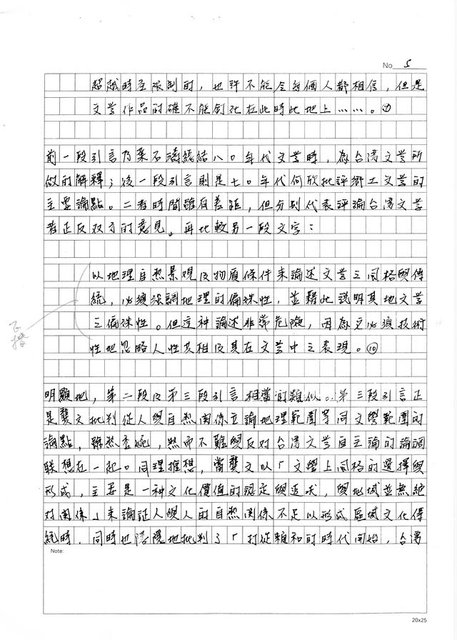 No. 5
超越時空限制的，也許不能令每個人都相信，但是
文學作品的確不能釘死在此時此地上……。
前一段引言乃葉石濤總結八〇年代文學時，為台灣文學所
做的解釋；後一段引言則是七〇年代何欣批評鄉土文學的
主要論點。二者時間雖有差距，但分別代表評論台灣文學
者正反双方的意見。再比較另一段文字：
以地理自然景观及物質條件來論述文學之同格與傳
統，必須強調地理的偏殊性，並藉此說明其地文學
之偏殊性。但這种論述非常危險，因為它必須技術
性地忽略人性及相及其在文學中之表現。(10)
明顯地，第二段及第三段引言相當的類似。第三段引言正
是龔文批判從人與自然関係立論地理範圍等同文學範圍的
論點，雖然委婉，然而不難與反对台灣文學自主論的論調
联想在一起。同理推想，當龔文以「文學上同格的選擇與
形成，主要是一种文化價值的認定與追求，與地域並無絕
对関係」來論証人與人的自然関係不足以形成區域文化傳
統時，同時也隱隱地批判了「打從雍和的时代開始，台灣
Note:
20x25